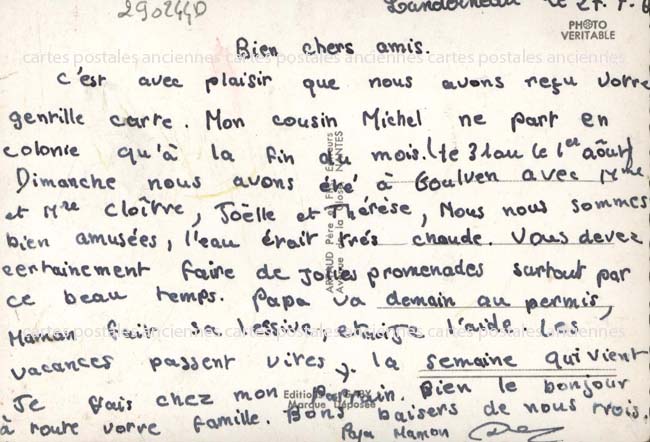 290244D
Landerneau le 27.7.6
PHOTO
VERITABLE
Bien chers amis.
cartes postales anciennes cartes postales anciennes
C'est avec plaisir que nous avons reçu votre
gentille carte. Mon cousin Michel ne part en
colonie qu'à la fin du mois. (le 31 ou le 1er Aôut)
Dimanche nous avons été à Goulven avec Mme
et Mre Cloître, Joëlle et Thérèse, Nous nous sommes
bien amusées, l'eau était très chaude. Vous devez
certainement faire de jolies promenades surtout par
ce beau temps. Papa va demain au permis,
Maman fait sa lessive, et moi je l'aide. Les
cartes postales anciennes cartes postales anciennes
vacances passent vites. la semaine qui vient
Je vais chez mon parrain. Bien le bonjour
à toute votre famille. Bons baisers de nous trois.
Papa Maman
ARTAUD Père et Fils Editeurs
NANTES
Editions GABY
Marque Déposée